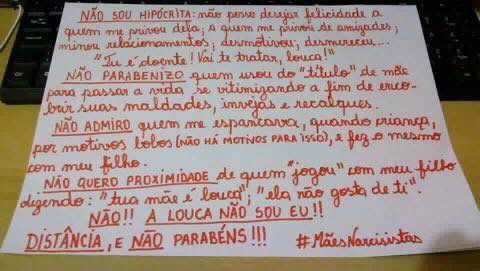 NÃO SOU HIPÓCRITA: não posso desejar felicidade a
quem me privou dela; a quem me privou de amizades;
minou relacionamentos; desmotivou; desmereceu...
"Tu é doente! Vai te tratar, louca!"
NÃO PARABENIZO quem usou do "título" de mãe
para passar a vida se vitimizando a fim de enco-
brir suas maldades, invejas e recalques.
NÃO ADMIRO quem me espancava, quando criança,
por motivos bobos (NÃO HÁ MOTIVOS PARA ISSO), e fez o mesmo
com meu filho.
NÃO QUERO PROXIMIDADE de quem "jogou" com meu filho
dizendo: "tua mãe é louca"; "ela não gosta de ti".
NÃO!! A LOUCA NÃO SOU EU!!
DISTÂNCIA, E NÃO PARABÉNS!!!
#MãesNarcisistas